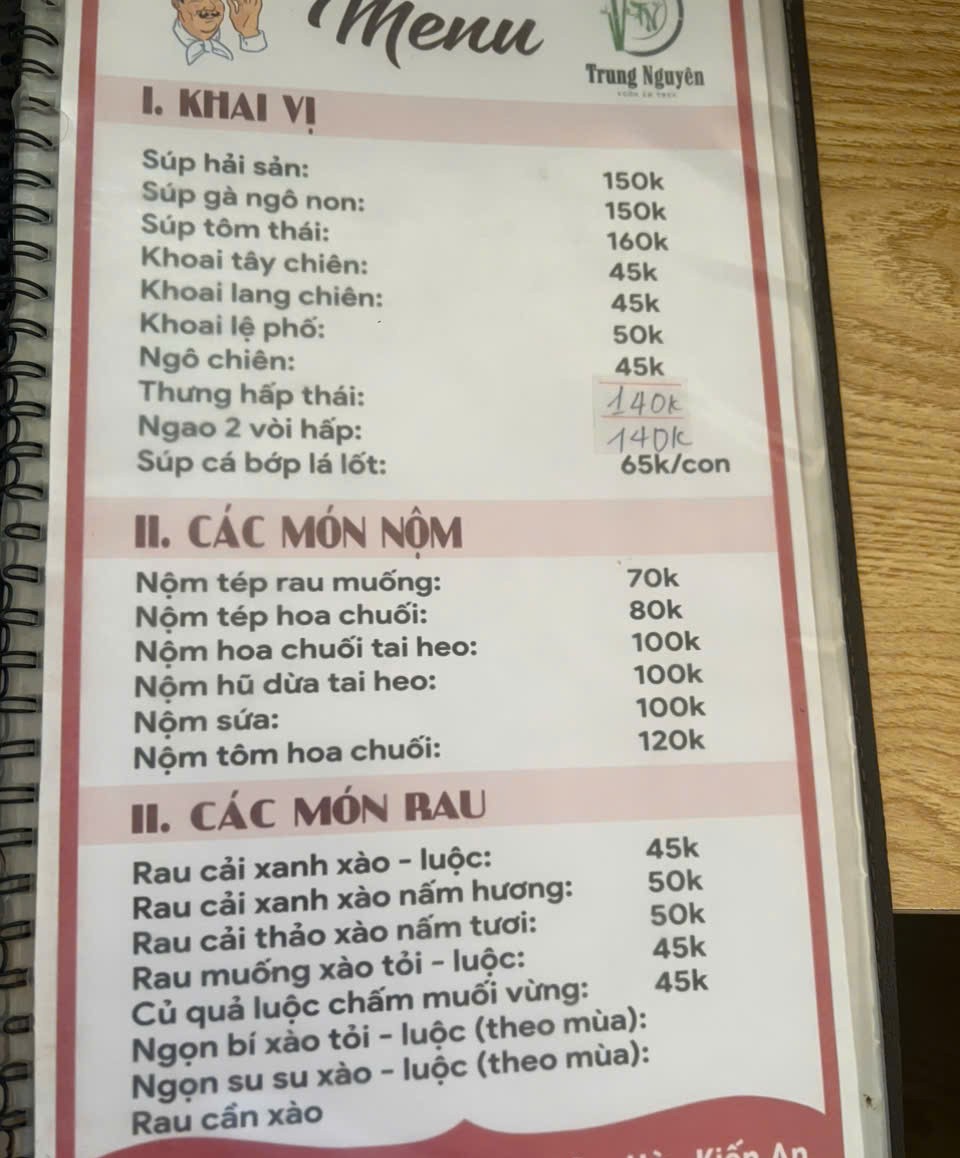 Menu
Trung Nguyên
I. KHAI VỊ
Súp hải sản: 150k
Súp gà ngô non: 150k
Súp tôm thái: 160k
Khoai tây chiên: 45k
Khoai lang chiên: 45k
Khoai lệ phố: 50k
Ngô chiên: 45k
Thưng hấp thái: 140k
Ngao 2 vòi hấp: 140k
Súp cá bớp lá lốt: 65k/con
II. CÁC MÓN NỘM
Nộm tép rau muống: 70k
Nộm tép hoa chuối: 80k
Nộm hoa chuối tai heo: 100k
Nộm hũ dừa tai heo: 100k
Nộm sứa: 100k
Nộm tôm hoa chuối: 120k
II. CÁC MÓN RAU
Rau cải xanh xào - luộc: 45k
Rau cải xanh xào nấm hương: 50k
Rau cải thảo xào nấm tươi: 50k
Rau muống xào tỏi - luộc: 45k
Củ quả luộc chấm muối vừng: 45k
Ngọn bí xào tỏi - luộc (theo mùa):
Ngọn su su xào - luộc (theo mùa):
Rau cần xào
Kiến An